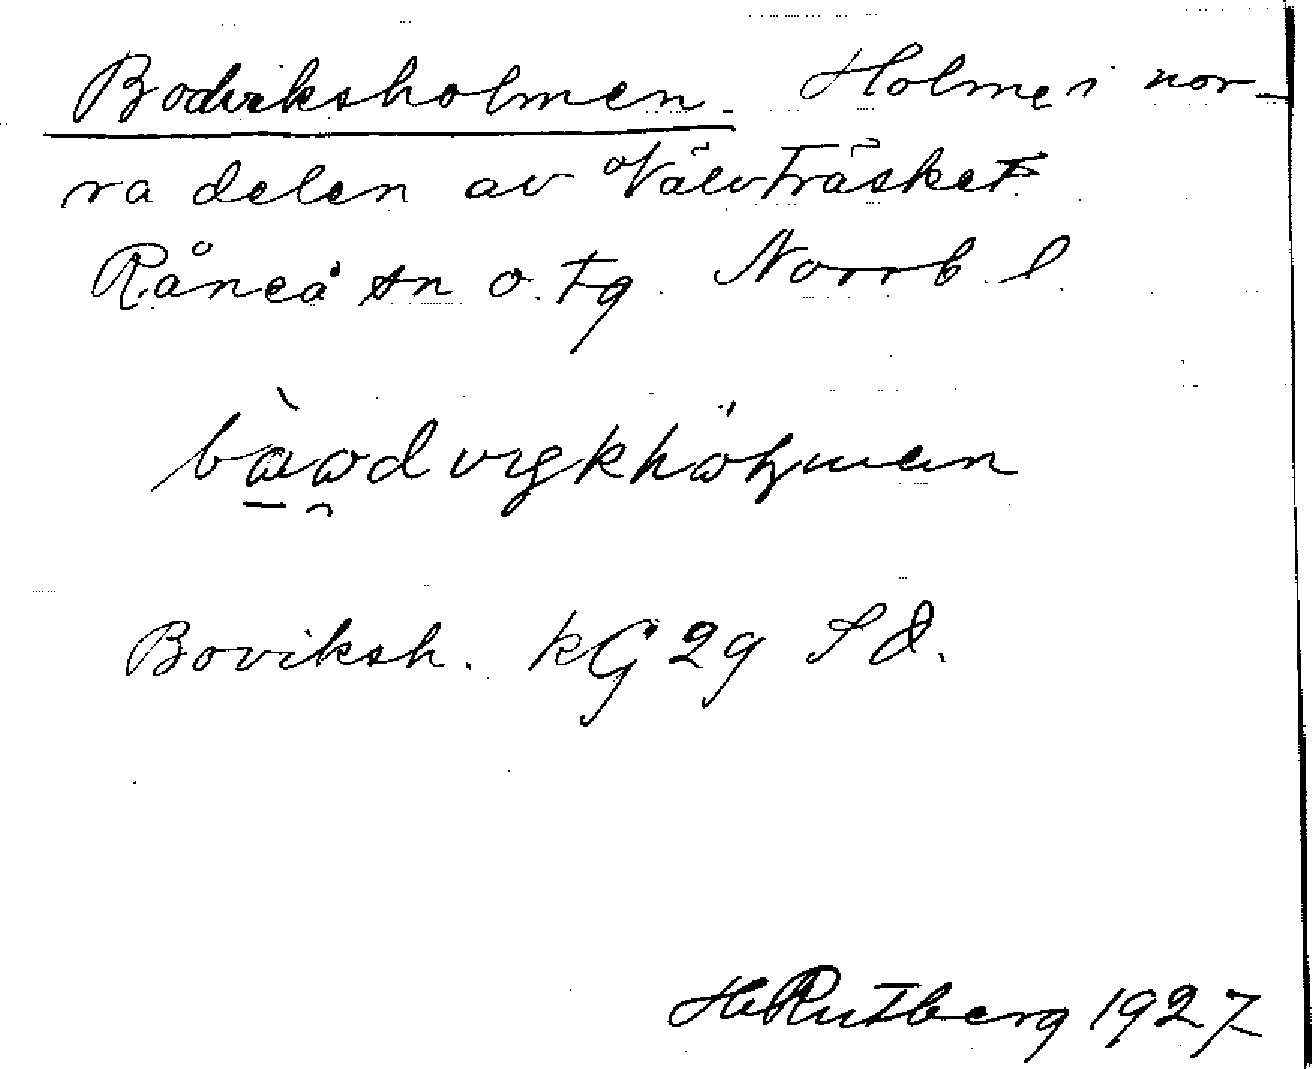 Bodviksholmen. Holme i nor-
ra delen av Välvträsket
Råneå sn o. tg. Norrb l.
Boviksh. kG 29 Sd.
H Rutberg 1927